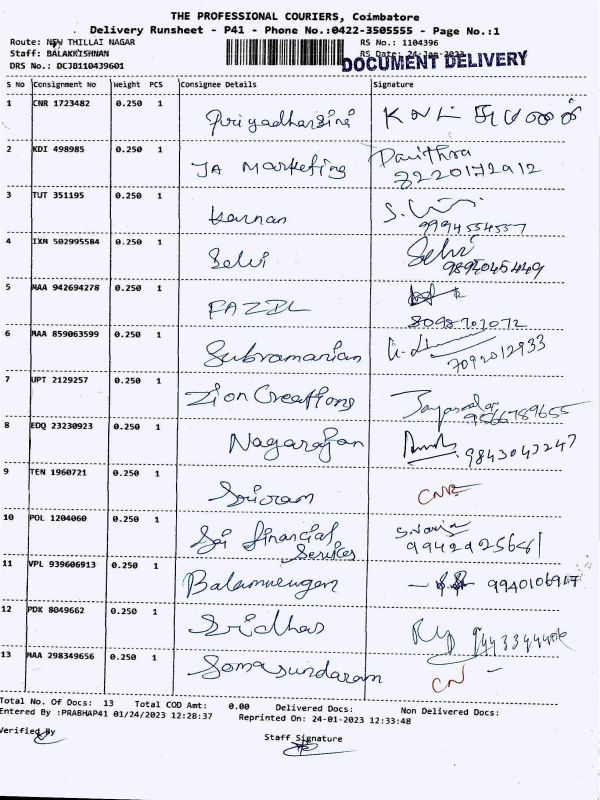 THE PROFESSIONAL COURIERS, Coimbatore
Delivery Runsheet - P41 - Phone No.:0422-3505555 - Page No.:1
Route: NEW THILLAI NAGAR RS No.: 1104396
Staff: BALAKRISHNAN RS Date: 24-Jan-2023
DOCUMENT DELIVERY
DRS No.: DCJB110439601
S NO Consignment No Weight PCS Consignee Details Signature
1 CNR 1723482 0.250 1 Priyadharsini
2 KDI 498985 0.250 1 JA Marketing Pavithra
8220172912
3 TUT 351195 0.250 1 Karnan
9994554557
4 IXM 502995584 0.250 1 Selvi Selvi
5 MAA 942694278 0.250 1 FAZIL
8098707072
6 MAA 859063599 0.250 1 Subramanian
7092012933
7 UPT 2129257 0.250 1 Zion Creations
9566789655
8 EDQ 23230923 0.250 1 Nagarajan
9843047247
9 TEN 1960721 0.250 1 Sriram
10 POL 1204060 0.250 1 Sai Financial
Services
11 VPL 939606913 0.250 1 Balamurugan
12 PDK 8049662 0.250 1 Sridhar
13 MAA 298349656 0.250 1 Somasundaram CN
Total No. Of Docs: 13 Total COD Amt: 0.00 Delivered Docs: Non Delivered Docs:
Entered By :PRABHAP41 01/24/2023 12:28:37 Reprinted On: 24-01-2023 12:33:48
Verified By
Staff Signature